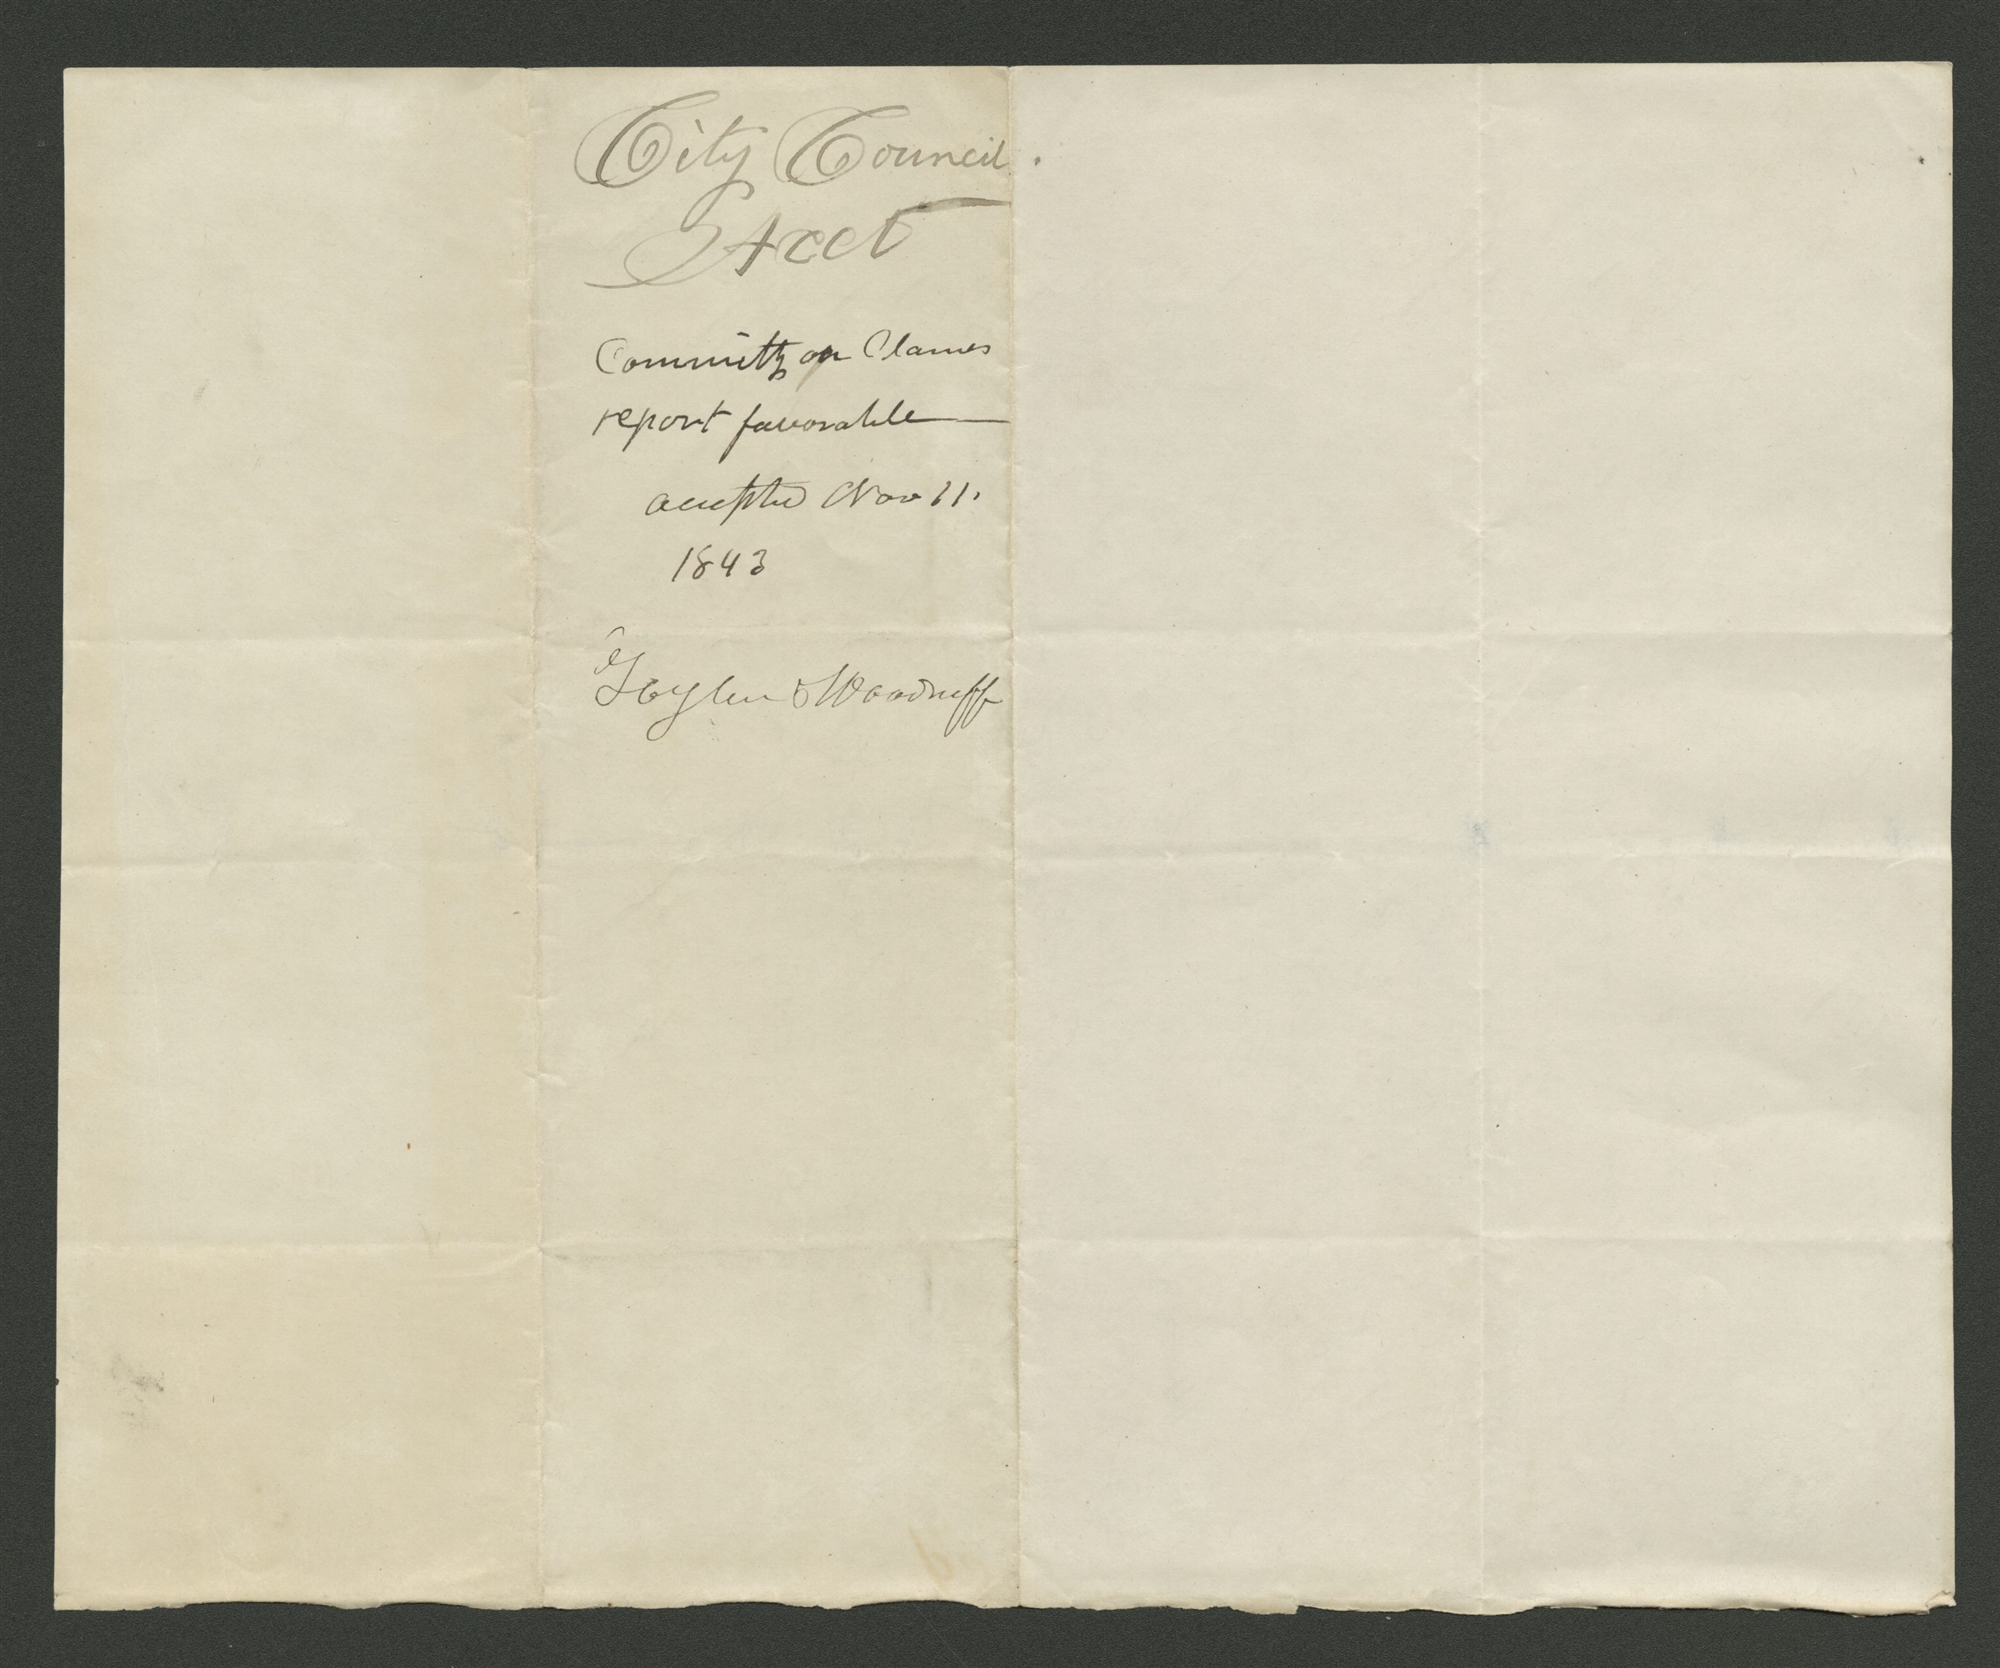 City Council.
Acct
Committy on Clames
report favorable
accepted Nov 11.
1843
Taylor & Woodruff